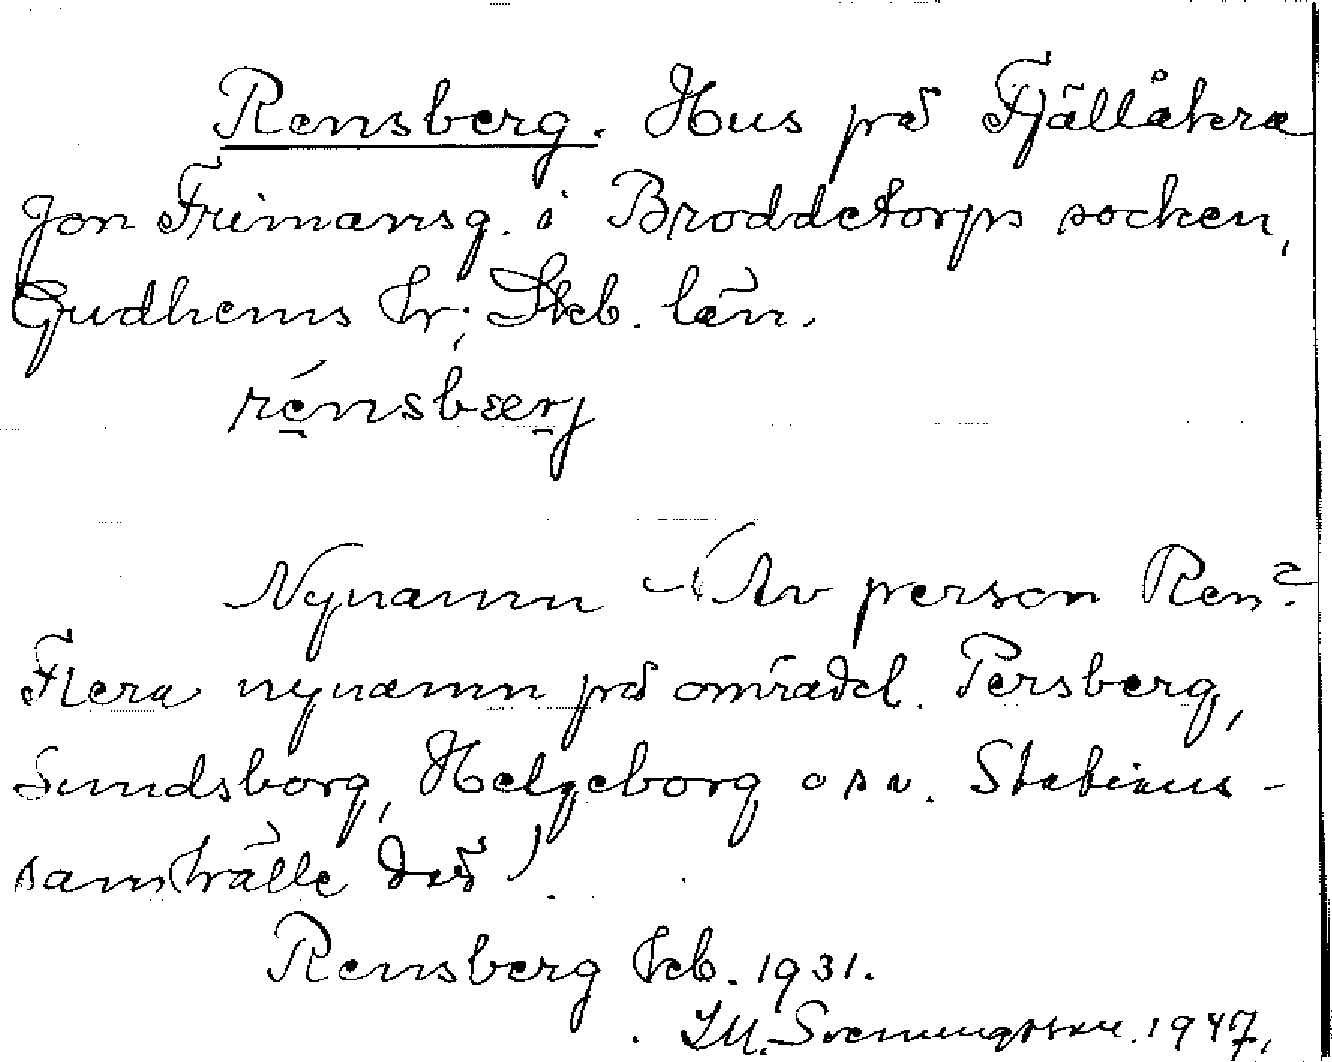 Rensberg. Hus på Fjällåkra
Jon Frimansg. i Broddetorps socken,
Gudhems hr; Skb. län.
rénsbærj
Nynamn – (Av person Ren?
Flera nynamn på området. Persberg,
Sundsborg, Helgeborg osv. Stations-
samhälle där).
Rensberg kb. 1931.
I.M. Svenningsson. 1947.